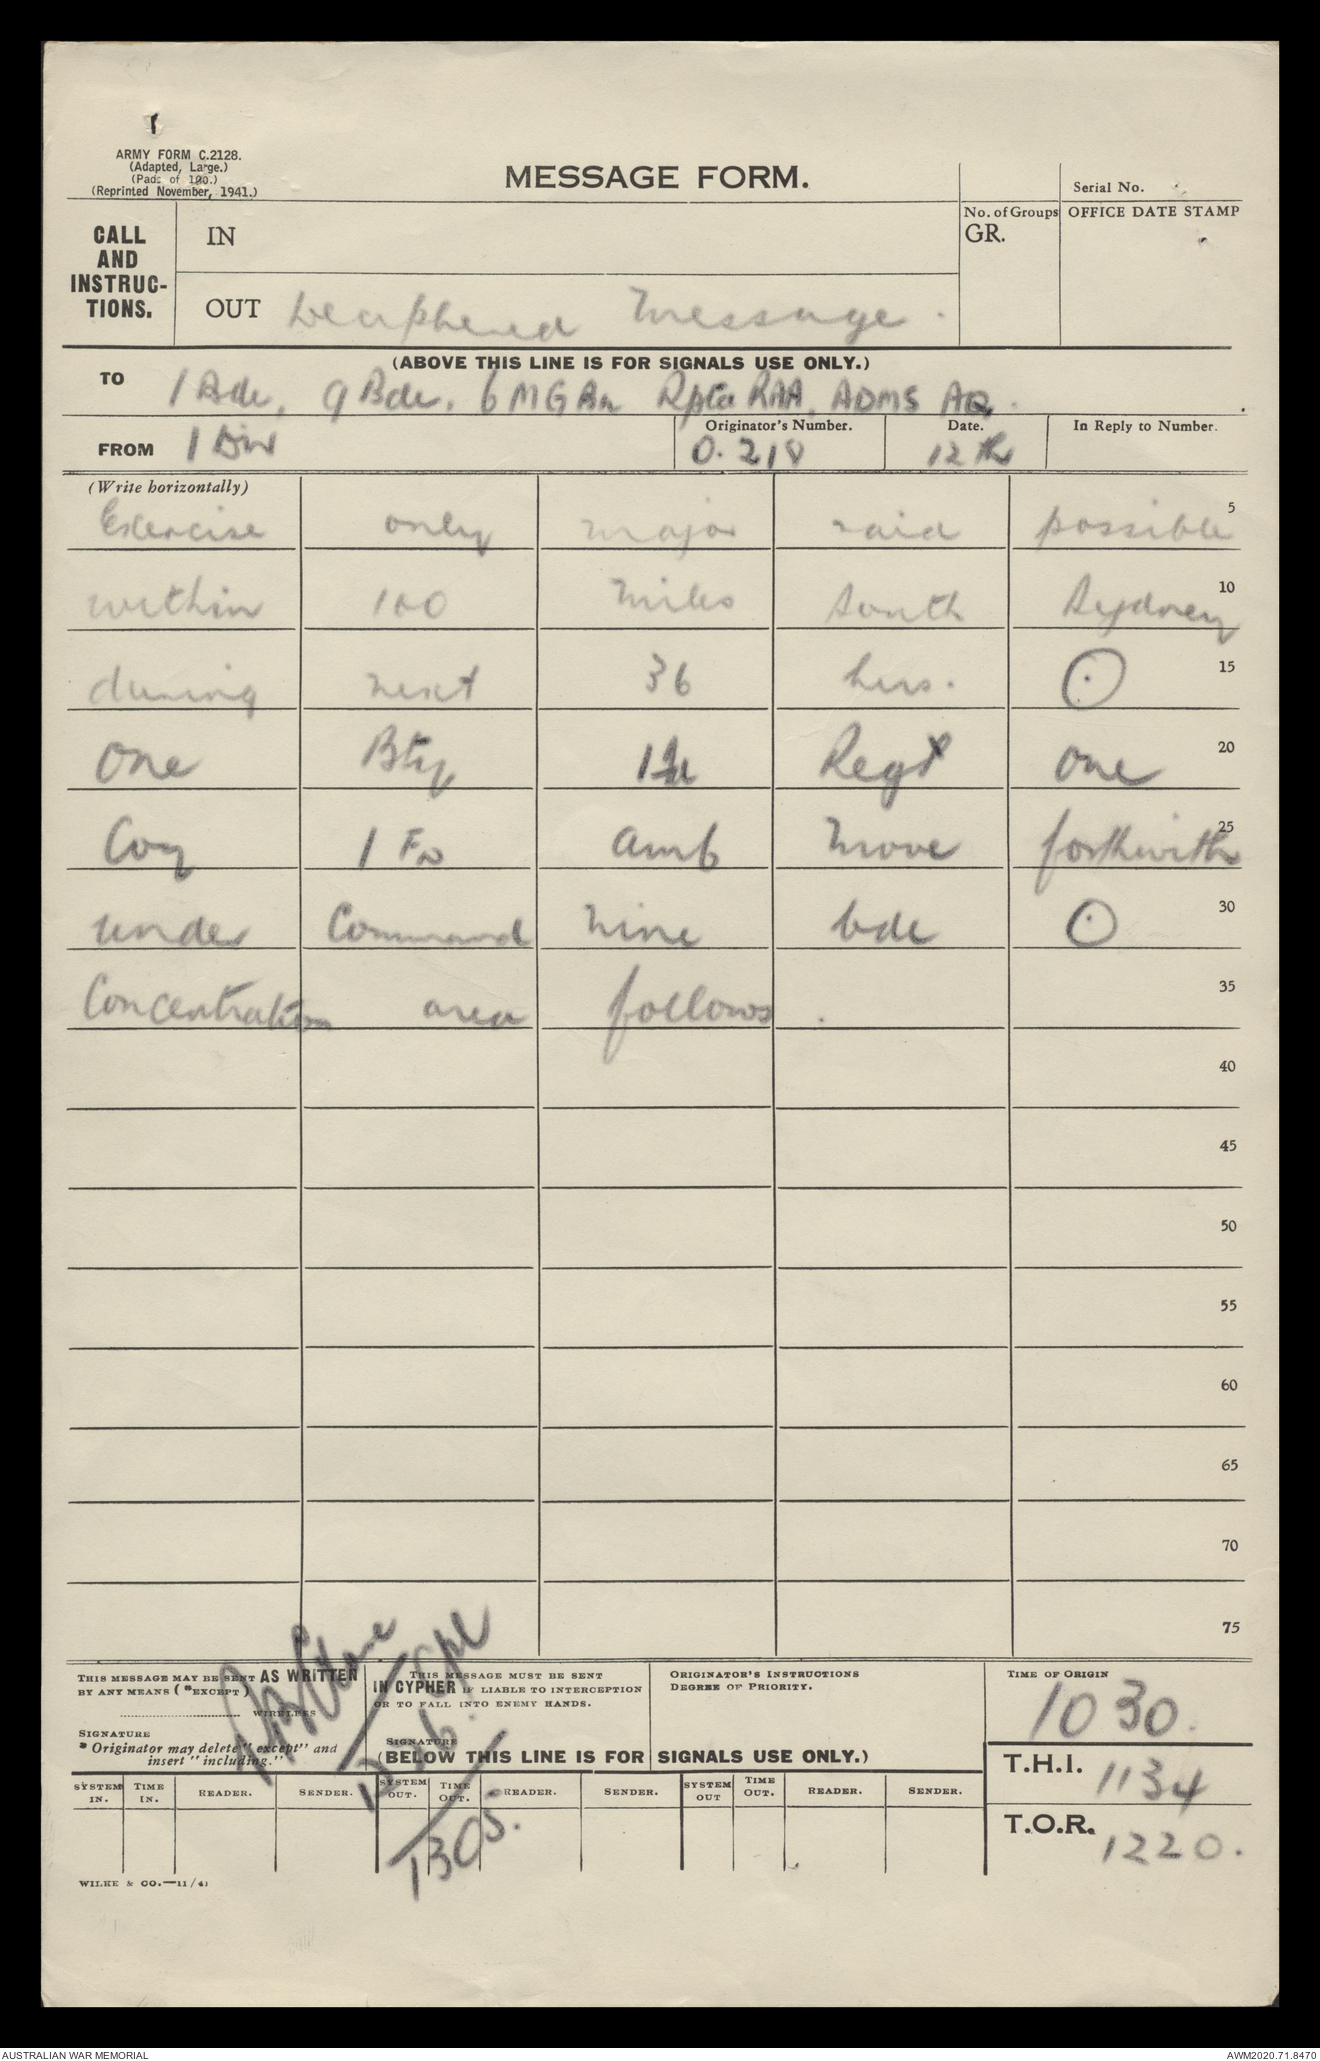 ARMY FORM C.2128.
(Adapted, Large.)
(Pads of 100.)
(Reprinted November, 1941.)
MESSAGE FORM.
Serial No.
CALL AND INSTRUC-TIONS.
IN
No. of Groups GR.
OFFICE DATE STAMP
OUT Deciphered Message.
(ABOVE THIS LINE IS FOR SIGNALS USE ONLY.)
TO 1 Bde, 9 Bde, 6 MG Bn Rptd RAA, ADMS AQ.
FROM 1 Div
Originator's Number. O. 218
Date. 12th
In Reply to Number.
(Write horizontally)
Exercise only major raid possible 5
within 100 miles South Sydney 10
during next 36 hrs. ⊙ 15
One Bty Regt one 20
Coy 1 Fd amb move forthwith 25
under Command nine bde ⊙ 30
Concentration area follows. 35
40
45
50
55
60
65
70
75
THIS MESSAGE MAY BE SENT AS WRITTEN
BY ANY MEANS (*EXCEPT)
WIRELESS
SIGNATURE
* Originator may delete "except" and
insert "including."
THIS MESSAGE MUST BE SENT
IN CYPHER IF LIABLE TO INTERCEPTION
OR TO FALL INTO ENEMY HANDS.
SIGNATURE
ORIGINATOR'S INSTRUCTIONS
DEGREE OF PRIORITY.
TIME OF ORIGIN
1030.
(BELOW THIS LINE IS FOR SIGNALS USE ONLY.)
T.H.I. 1134
T.O.R. 1220.
SYSTEM IN. TIME IN. READER. SENDER. SYSTEM OUT. TIME OUT. READER. SENDER. SYSTEM OUT TIME OUT. READER. SENDER.
Cpl
1305.
WILKE & CO.—11/41
AUSTRALIAN WAR MEMORIAL
AWM2020.71.8470